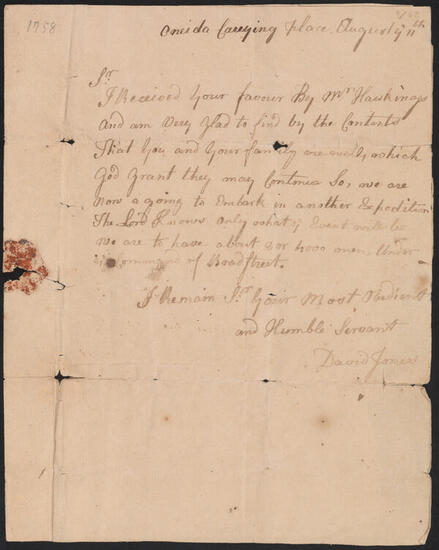 1758
Oneida Carrying place August ye 11th
Sr
I Received your favour By Mr Hawkings
And am Very Glad to find by the Contents
That You and Your family are well, which
God Grant they may Contonue So, we are
now a going to Embark in another Expedition
The Lord Knows Only what ye Event will be
we are to have about 3 or 4000 men, Under
ye Command of Broadstreet.
I Remain Sr Your Most Obediant
and Humble Servant
David Jones